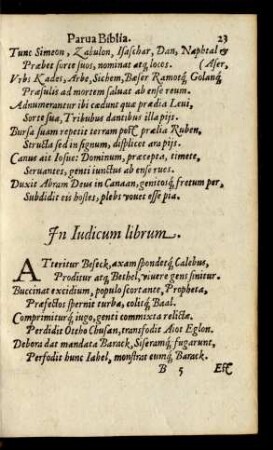 Parua Biblia. 23
Tunc Simeon, Zabulon, Isaschar, Dan, Naphtal &
Præbet forte suos, nominat atq́; locos. (Aser,
Vrbs Kades, Arbe, Sichem, Bæser Ramotq́; Golanq́;
Præsulis ad mortem saluat ab ense reum.
Adnumerantur ibi cædunt quæ prædia Leui,
Sorte sua, Tribubus dantibus illa pijs.
Bursa suam repetit terram post prælia Ruben,
Structa sed in signum, displicet ara pijs.
Canus ait Iosue: Dominum, præcepta, timete,
Seruantes, genti iunctus ab ense rues.
Duxit Abram Deus in Canaan, genitosq́; fretum per,
Subdidit eis hostes, plebs vouet esse pia.
In Iudicum librum.
ATteritur Beseck, axam spondetq́; Calebus,
Proditur atq́; Bethel, viuere gens sinitur.
Buccinat excidium, populo scortante, Propheta,
Præfectos spernit turba, colitq́; Baal.
Comprimiturq́; iugo, genti commixta relictæ.
Perdidit Otcho Chusan, transfodit Aiot Eglon.
Debora dat mandata Barack, Siseramq́; fugarunt,
Perfodit hunc Iahel, monstrat eumq́; Barack.
B 5 Est